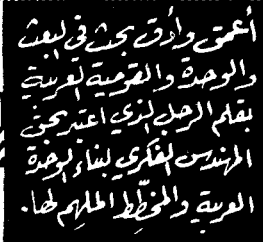 أعمق وأدق بحث في البعث
والوحدة والقومية العربية
بقلم الرجل الذي اعتبر بحق
المهندس الفكري لبناء الوحدة
العربية والمخطِّط الملهِم لها.